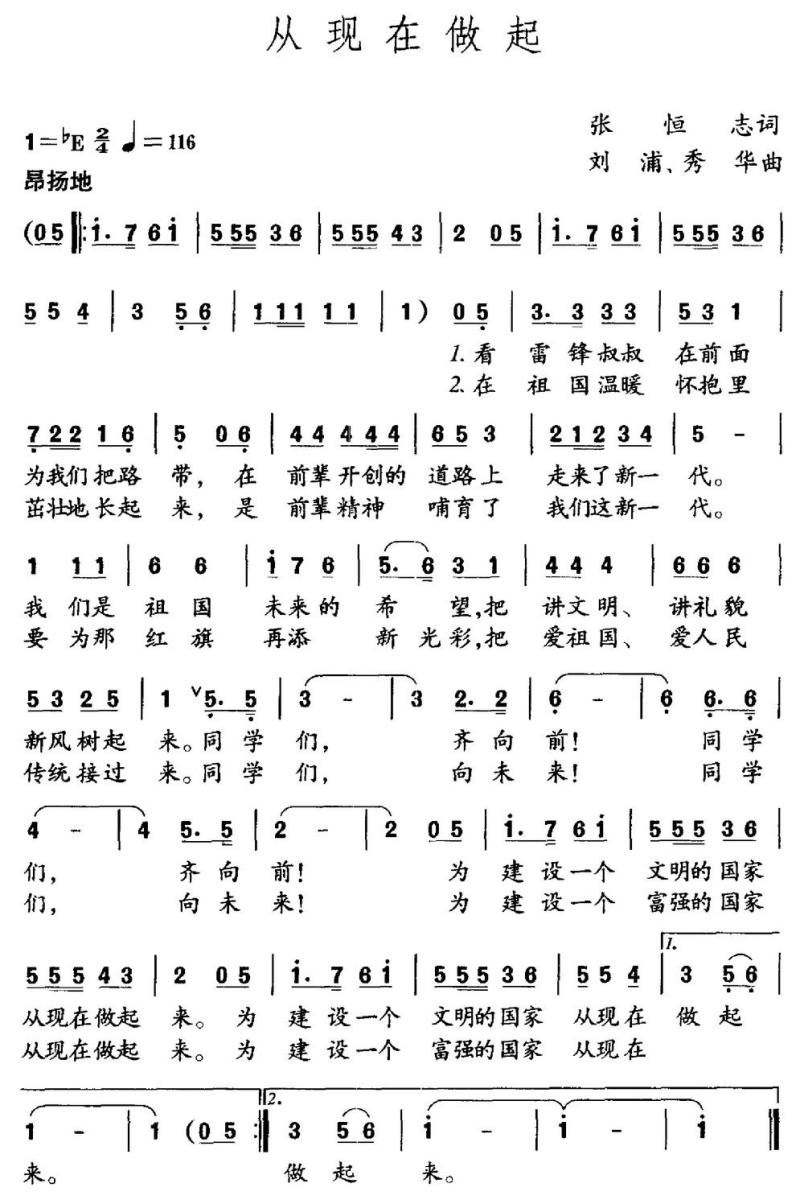 从现在做起
1=♭E 2/4 ♩=116
张恒志词
刘浦、秀华曲
昂扬地
(05 ‖: i. 7 6 i | 555 36 | 555 43 | 2 05 | i. 7 6 i | 555 36 |
5 5 4 | 3 5 6 | 1 11 11 | 1) 05 | 3. 3 33 | 53 1 |
1.看 雷锋叔叔 在前面
2.在 祖国温暖 怀抱里
722 16 | 5 06 | 44 444 | 65 3 | 2123 4 | 5 - |
为我们把路 带,在 前辈开创的 道路上 走来了新一 代。
茁壮地长起 来,是 前辈精神 哺育了 我们这新一 代。
1 11 | 6 6 | i 7 6 | 5. 6 31 | 44 4 | 66 6 |
我 们是 祖国 未来的 希 望,把 讲文明、 讲礼貌
要 为那 红旗 再添 新光彩,把 爱祖国、 爱人民
53 25 | 1 ∨5. 5 | 3 - | 3 2. 2 | 6 - | 6 6. 6 |
新风树起 来。同学 们, 齐向 前! 同学
传统接过 来。同学 们, 向未 来! 同学
4 - | 4 5. 5 | 2 - | 2 05 | i. 7 6 i | 555 36 |
们, 齐向 前! 为 建设一个 文明的国家
们, 向未 来! 为 建设一个 富强的国家
1.
555 43 | 2 05 | i. 7 6 i | 555 36 | 55 4 | 3 56 |
从现在做起 来。为 建设一个 文明的国家 从现在 做起
从现在做起 来。为 建设一个 富强的国家 从现在
2.
1 - | 1 (05 :‖ 3 56 | i - | i - | i ‖
来。 做起 来。